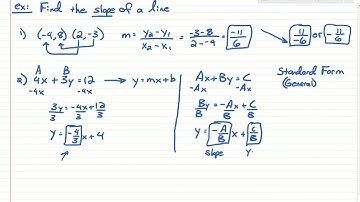 ex: Find the slope of a line
1) (-4,8) (2,-3) m = y₂-y₁ / x₂-x₁ = -3-8 / 2--4 = -11/6 → 11/-6 or -11/6
2) 4x + 3y = 12 → y = mx + b
A B
-4x -4x
3y/3 = -4x/3 + 12/3
y = -4/3 x + 4
Ax + By = C
-Ax -Ax
By/B = -Ax/B + C/B
y = -A/B x + C/B
slope y-
Standard Form
(General)